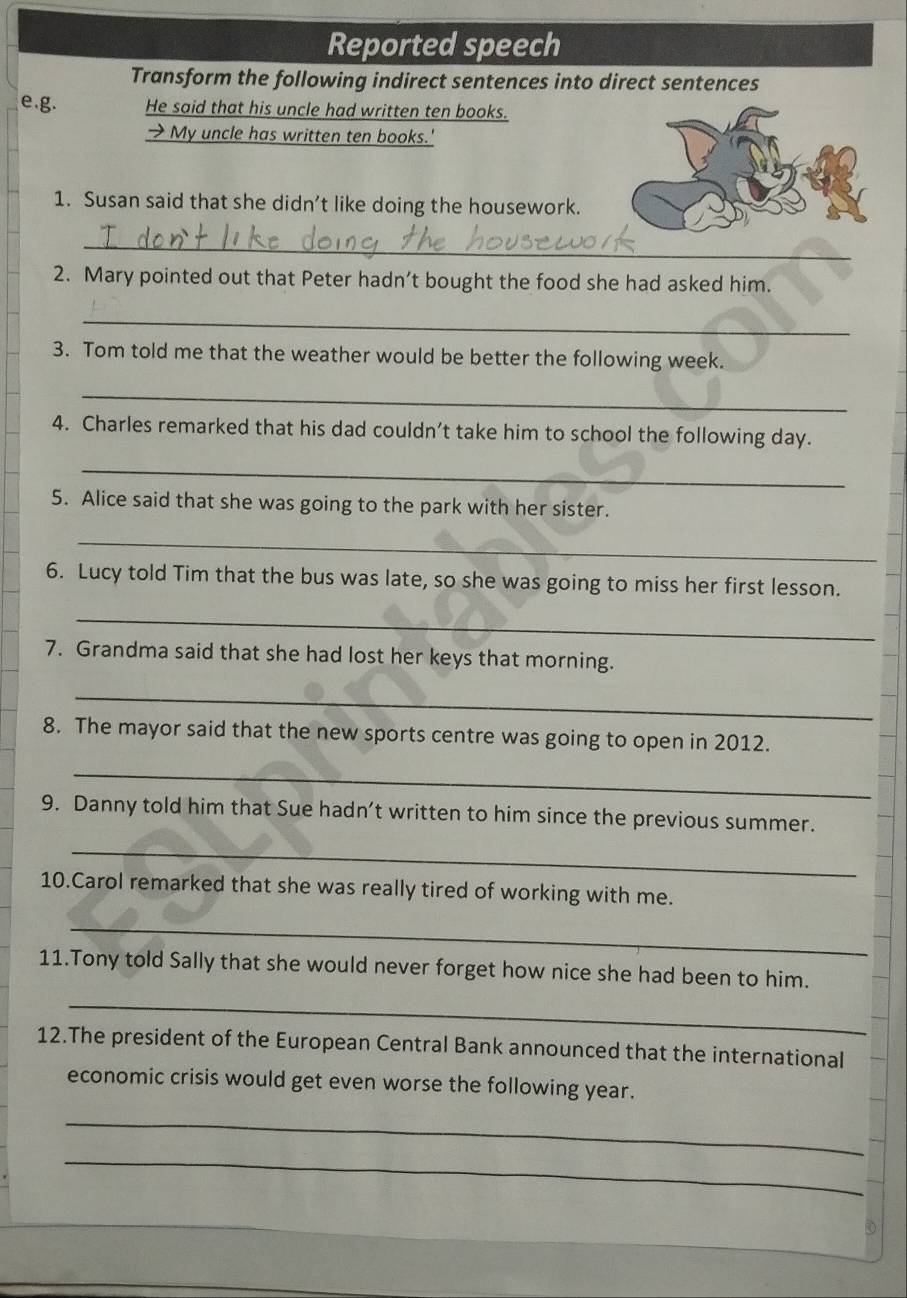 Reported speech
Transform the following indirect sentences into direct sentences
e.g. He said that his uncle had written ten books.
→ My uncle has written ten books.'
1. Susan said that she didn't like doing the housework.
I don't like doing the housework
2. Mary pointed out that Peter hadn't bought the food she had asked him.
3. Tom told me that the weather would be better the following week.
4. Charles remarked that his dad couldn't take him to school the following day.
5. Alice said that she was going to the park with her sister.
6. Lucy told Tim that the bus was late, so she was going to miss her first lesson.
7. Grandma said that she had lost her keys that morning.
8. The mayor said that the new sports centre was going to open in 2012.
9. Danny told him that Sue hadn't written to him since the previous summer.
10.Carol remarked that she was really tired of working with me.
11.Tony told Sally that she would never forget how nice she had been to him.
12.The president of the European Central Bank announced that the international
economic crisis would get even worse the following year.
ESLprintables.com